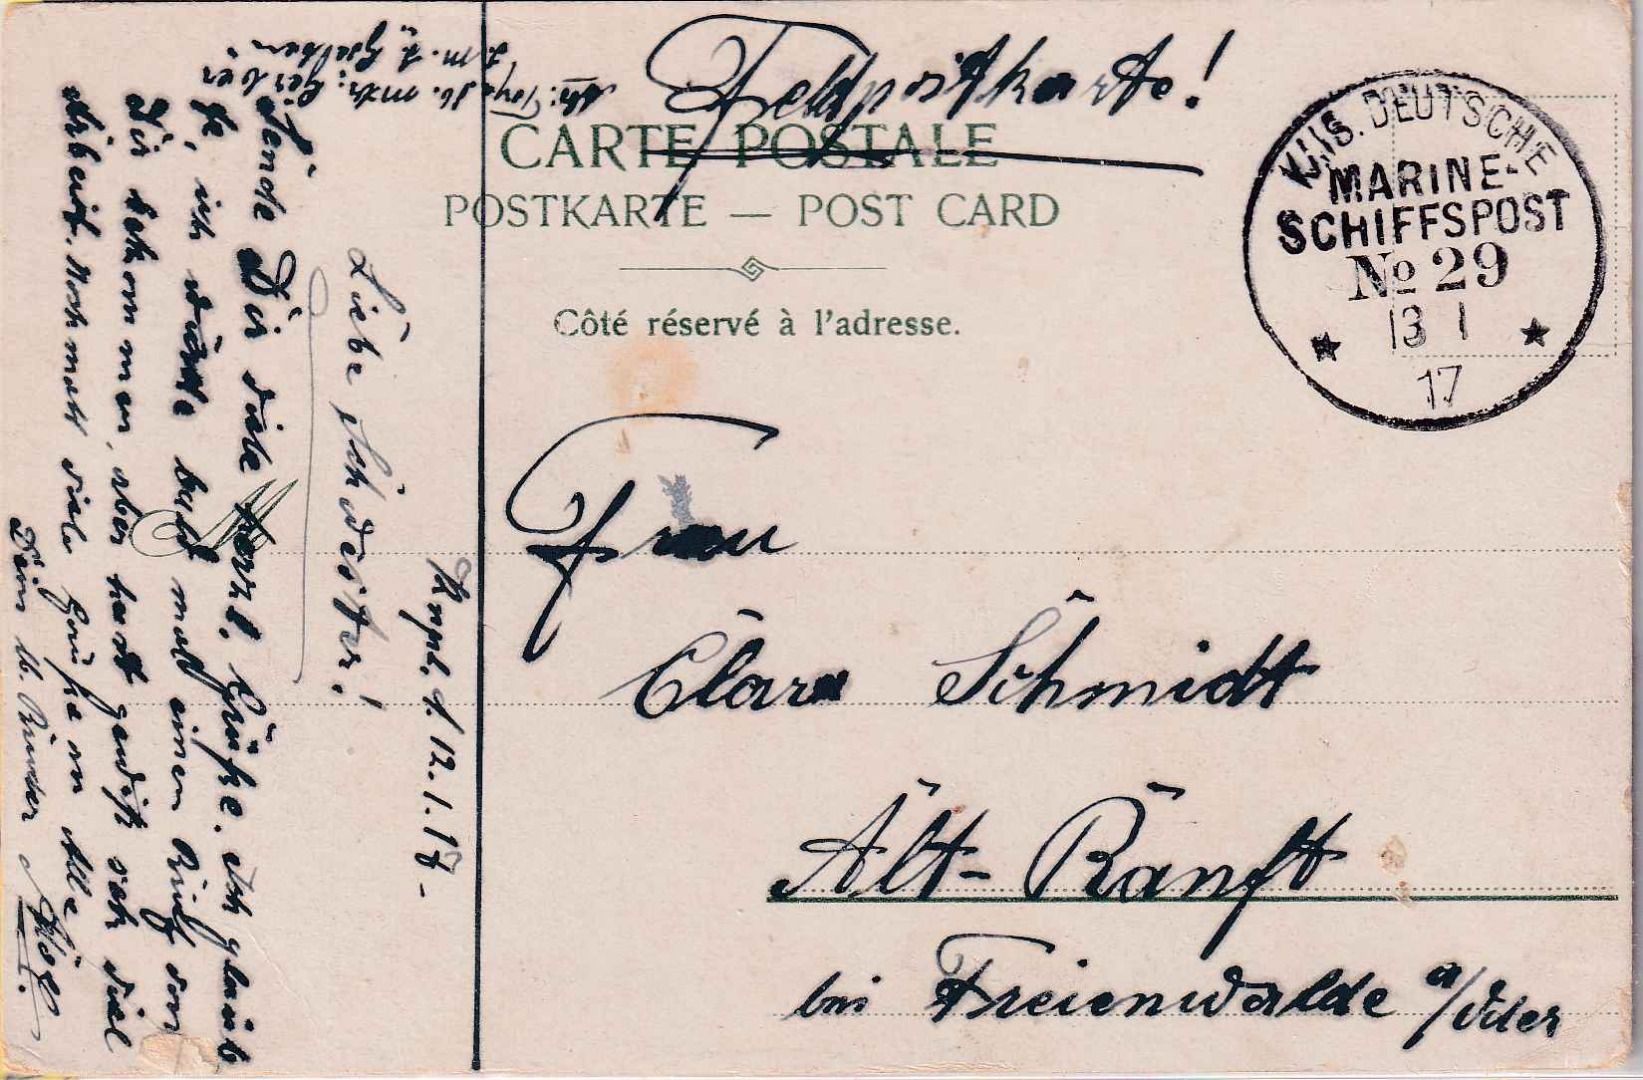 Feldpostkarte!
CARTE POSTALE
POSTKARTE — POST CARD
Côté réservé à l'adresse.
KAIS. DEUTSCHE
MARINE-
SCHIFFSPOST
No 29
13 1
17
Frau
Clara Schmidt
Alt-Ranft
bei Freienwalde a/Oder
12.1.17-
Liebe Schwester!
Sende Dir viele herzl. Grüße. Ich glaub
te, ich würde bald mal einen Brief von
Dir bekommen, aber hast gewiß sehr viel
Arbeit. Nochmals viele Grüße an Alle
Dein lb. Bruder